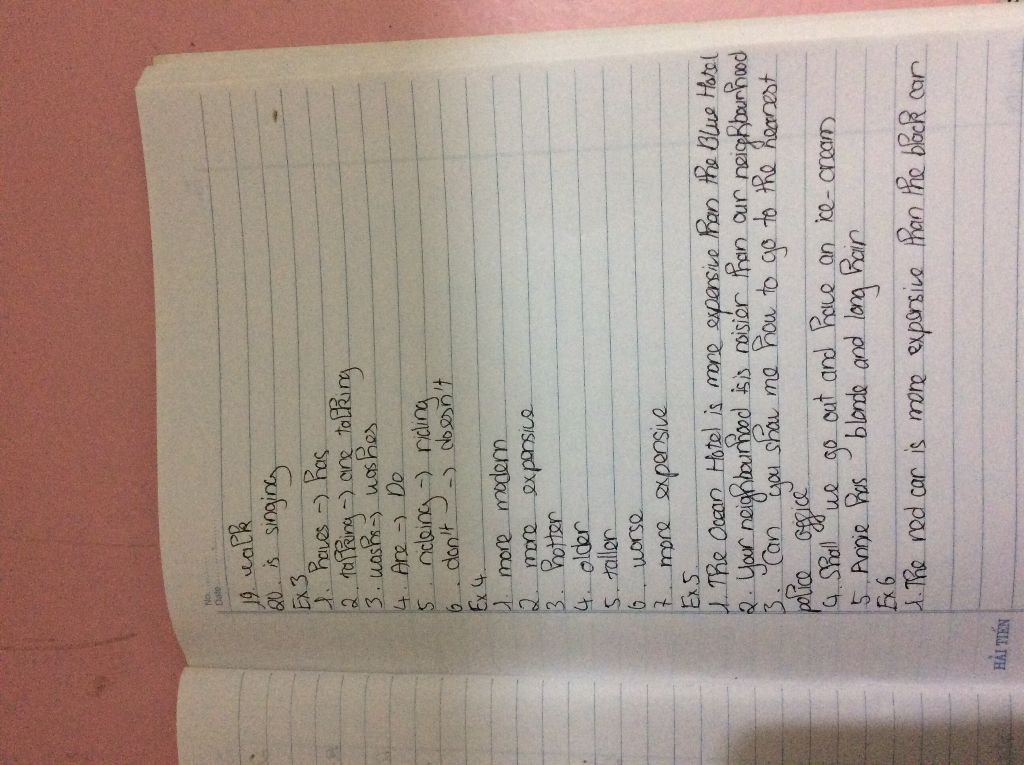 No.
Date
19. walk
20. is singing
Ex 3
1. haves -> has
2. talking -> are talking
3. washs -> washes
4. Are -> Do
5. rideing -> riding
6. don't -> doesn't
Ex 4
1. more modern
2. more expensive
3. hotter
4. older
5. taller
6. worse
7. more expensive
Ex 5
1. The Ocean Hotel is more expensive than the Blue Hotel
2. Your neighbourhood is is noisier than our neighbourhood
3. Can you show me how to go to the nearest
police office
4. Shall we go out and have an ice-cream
5. Annie has blonde and long hair
Ex 6
1. The red car is more expensive than the black car
HẢI TIẾN